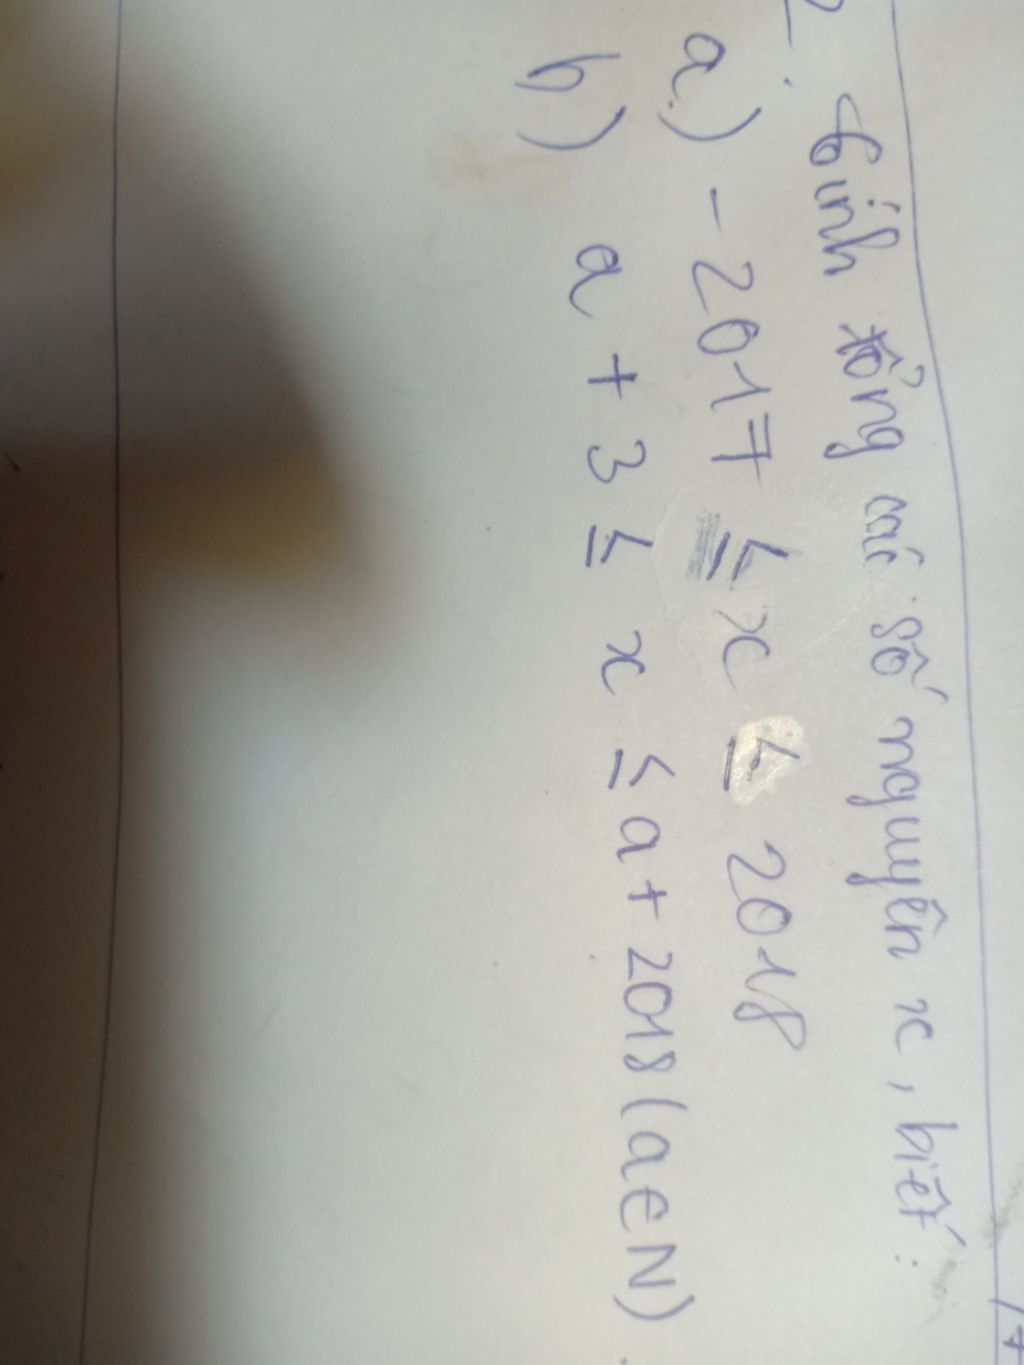 2. Tính tổng các số nguyên x, biết:
a) - 2017 ≤ x ≤ 2018
b) a + 3 ≤ x ≤ a + 2018 (a ∈ N)